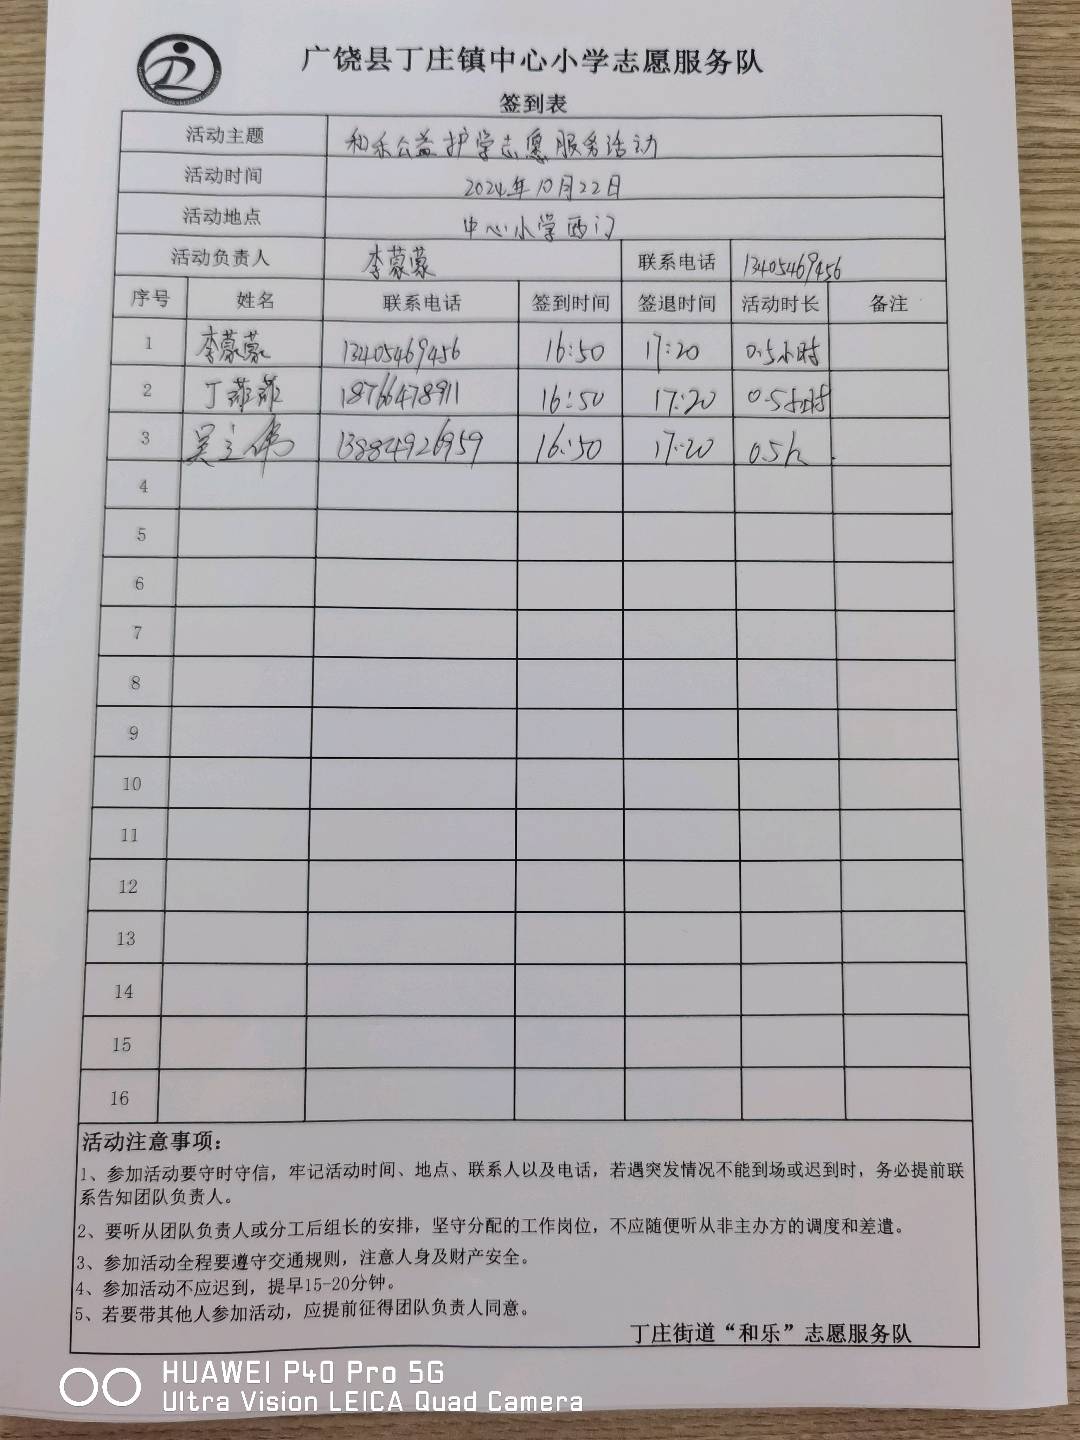 广饶县丁庄镇中心小学志愿服务队
签到表
活动主题 和乐公益护学志愿服务活动
活动时间 2024年10月22日
活动地点 中心小学西门
活动负责人 李蒙蒙 联系电话 13405469456
序号 姓名 联系电话 签到时间 签退时间 活动时长 备注
1 李蒙蒙 13405469456 16:50 17:20 0.5小时
2 丁菲菲 18766478911 16:50 17:20 0.5小时
3 吴立伟 13884926959 16:50 17:20 0.5h
4
5
6
7
8
9
10
11
12
13
14
15
16
活动注意事项：
1、参加活动要守时守信，牢记活动时间、地点、联系人以及电话，若遇突发情况不能到场或迟到时，务必提前联
系告知团队负责人。
2、要听从团队负责人或分工后组长的安排，坚守分配的工作岗位，不应随便听从非主办方的调度和差遣。
3、参加活动全程要遵守交通规则，注意人身及财产安全。
4、参加活动不应迟到，提早15-20分钟。
5、若要带其他人参加活动，应提前征得团队负责人同意。
丁庄街道“和乐”志愿服务队
HUAWEI P40 Pro 5G
Ultra Vision LEICA Quad Camera